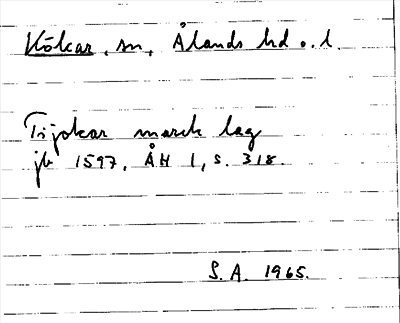 Kökar, sn, Ålands hd o. l.
Tijokar marck lag
jb 1597, ÅH 1, s. 318.
S.A. 1965.